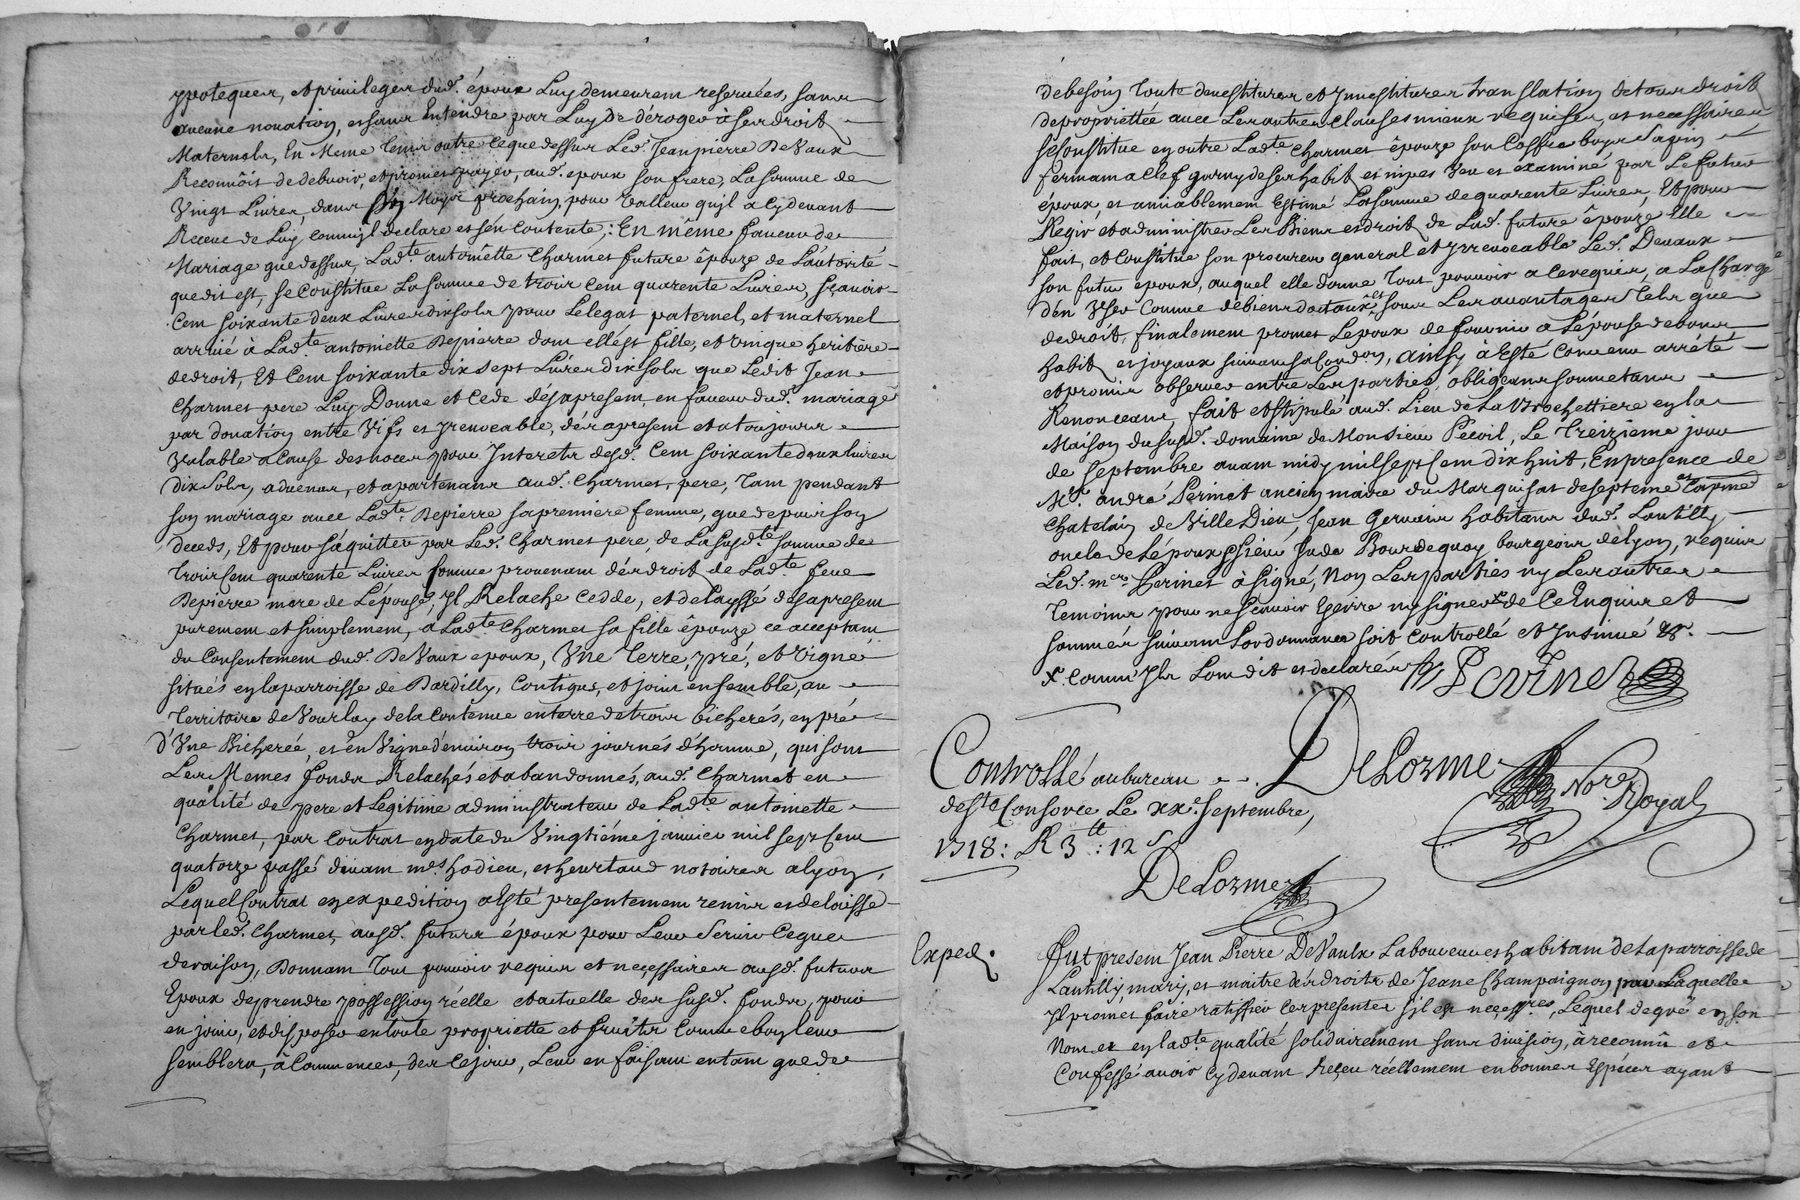 ypoteques, et privileges dud. époux Luy demeurent reservées, sans
aucune novation, et sans Entendre par Luy de déroger à ses droits
Maternels, En Meme tems outre ce que dessus Led. Jean pierre De Vaux
Reconnôit de debvoir, et promet payer, aud. epoux son frere, La somme de
Vingt Livres, dans six Moys prochain, pour Valleur quil a Cy devant
Receue de Luy comm'jl declare et s'en Contente; En même faveur de
Mariage que dessus, Ladte. antoinette Charmet future êpouze de L'autorité
que dit est, se Constitue La somme de trois Cent quarente Livres, sçavoir
Cent soixante deux Livres dix sols pour Le legat paternel, et maternel
arrivé à Ladte. antoinette Depierre dont elle est fille, et Vnique heritiere
de droit, Et Cent soixante dix sept Livres dix sols que Ledit Jean
Charmet pere Luy Donne et Cede dés apresent en faveur dud. mariage
par donation entre Vifs et jrrevocable, dés apresent et a toujours
Valable a Cause des noces pour Interets desd. Cent soixante deux livres
dix sols, advenus, et apartenans aud. Charmet, pere, Tant pendant
son mariage avec Ladte. Depierre sa premiere femme, que depuis son
deceds, Et pour s'aquitter par Led. Charmet pere, de La susdte. somme de
Trois Cent quarente Livres somme provenant dés droits de Ladte feue
Depierre mere de L'épouse, Jl Relache Cedde, et delaysse dés apresent
purement et simplement, a Ladte Charmet sa fille êpouze ce acceptant
du Consentement dud. De Vaux epoux, Vne Terre, pré, et Vigne
situés en la parroisse de Dardilly, Contigus, et joint ensemble, au
Territoire de Vourlay de la Contenue en terre de trois bicherés, en pré
d'Vne Bicherée, et en Vigne d'environ trois journés d'homme, qui sont
Les Memes fonds Relachés et abandonnés, aud. Charmet en
qualité de pere et Legitime administrateur de Ladte antoinette
Charmet, par Contrat en date du Vingtiéme janvier mil sept Cent
quatorze passé devant mes. hodieu, et heurtaud notaires a lyon,
Lequel Contrat en expedition a Esté presentement remis et delaissé
par led. Charmet, ausd. futurs époux pour Leur Servir Ce que
de raison, Donnant Tout pouvoir requis et necessaires ausd. futurs
Epoux de prendre possession réelle et actuelle des susd. fonds, pour
en jouir, et disposer en toute propriette et fruits Comme bon leur
semblera, à Commencer, des Ce jour, Leur en faisant en tant que de
de besoin Toute devestitures et Jnvestitures Translation de tous droits
de proprietté avec Les autres Clauses mieux requises, et necessaires
se Constitue en outre Ladte Charmet épouze son Coffre boys Sapin
fermant a Clef garny de ses habits et nipes Veu et examiné par Le futur
epoux, et amiablement Estimé La somme de quarente Livres, Et pour
Regir, et administrer Les Biens et droits de Lad. future êpouze Elle
fait, et Constitue son procureur general et jrrevocable Led. Devaux
son futur epoux, auquel elle donne Tout pouvoir a Ce requis, a La charge
d'en Vser Comme de biens dotaux et sous Les avantages Tels que
de droit, finalement promet L'epoux de fournir a L'épouse de bons
habits et joyaux suivant sa Condon, Ainsy à Esté Convenu arrêté
et promis observer entre Les parties, obligeans soumetans
Renonceans, fait et stipulé aud. Lieu de La brochettiere en la
Maison du susd. domaine de Monsieur Pecoil, Le Treizieme jour
de septembre avant midy mil sept Cent dix huit, En presence de
Mr. andré Perinet ancien maire du Marquisat de Septeme et Capne
Chatelain de Ville Dieu, Jean Gervais habitant dud. Lantilly
oncle de L'époux, sieur Jude Bourdequoy bourgeois de Lyon, requis
Led. mre Perinet à signé, Non Les parties ny Les autres
Temoins pour ne scavoir Ecrire ny signer x de Ce Enquis et
sommés suivant L'ordonnance soit Controllé et Jnsinué &c.
x Comm'jls L'ont dit et declarés Perinet
Controllé au bureau DeLorme
de Ste Consorce Le xxe. septembre, Nore. Royal
1718: R 3tt: 12s
DeLorme
Exped.
Fut present Jean Pierre DeVaulx Laboureur et habitant de La parroisse de
Lantilly mary, et maitre dés droits de Jeane Champaignon, par Laquelle
Jl promet faire ratiffier Ces presentes s'jl est necessres, Lequel de gré en son
Nom et en ladte qualité solidairement sans division, à reconnû et
Confessé avoir Cy devant Reçeu réellement en bonnes Espéces ayant